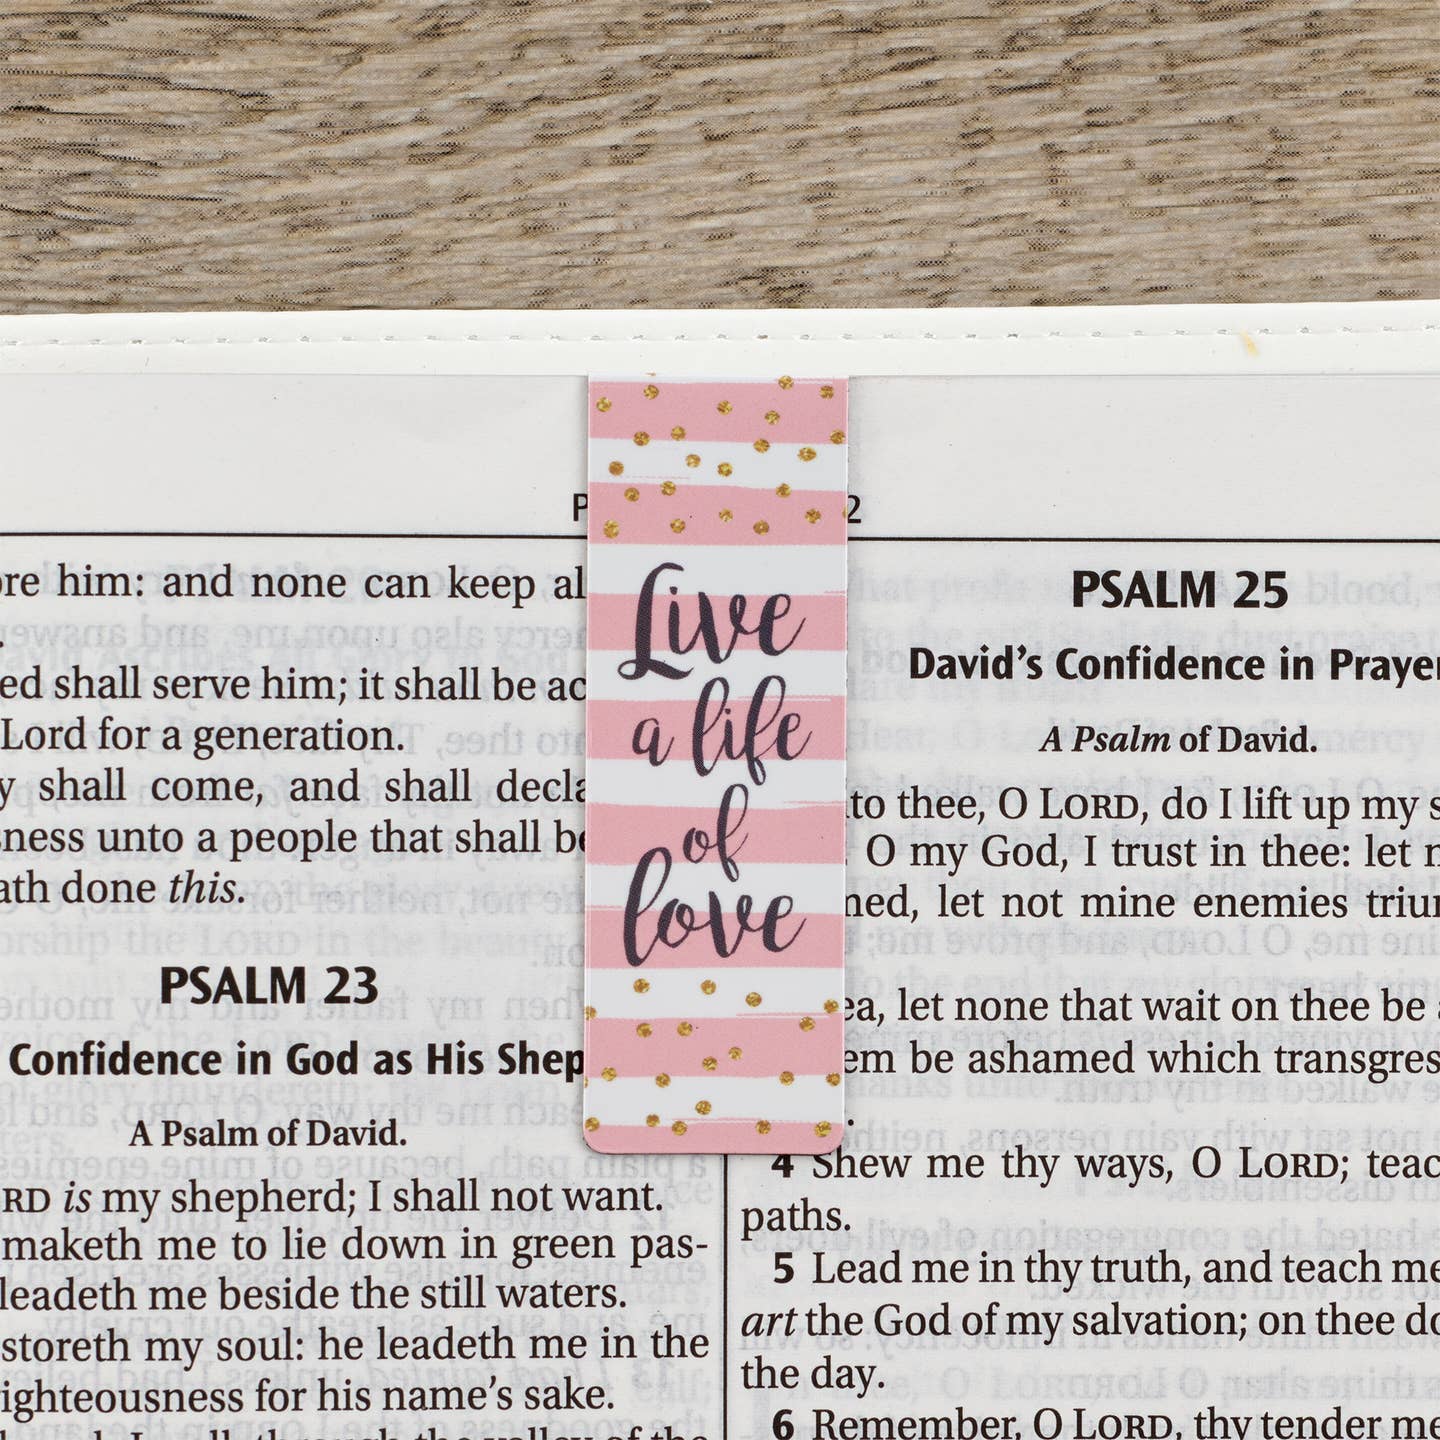 Live
a life
of
love
him: and none can keep
shall serve him; it shall be
Lord for a generation.
shall come, and shall
unto a people that shall
done this.
PSALM 23
Confidence in God as His
A Psalm of David.
is my shepherd; I shall not want.
maketh me to lie down in green pas-
leadeth me beside the still waters.
my soul: he leadeth me in the
for his name's sake.
PSALM 25
David's Confidence in
A Psalm of David.
to thee, O LORD, do I lift up my
O my God, I trust in thee: let
let not mine enemies
let none that wait on thee be
be ashamed which
4 Shew me thy ways, O LORD;
paths.
5 Lead me in thy truth, and teach
art the God of my salvation; on thee
the day.
6 Remember, O LORD, thy tender